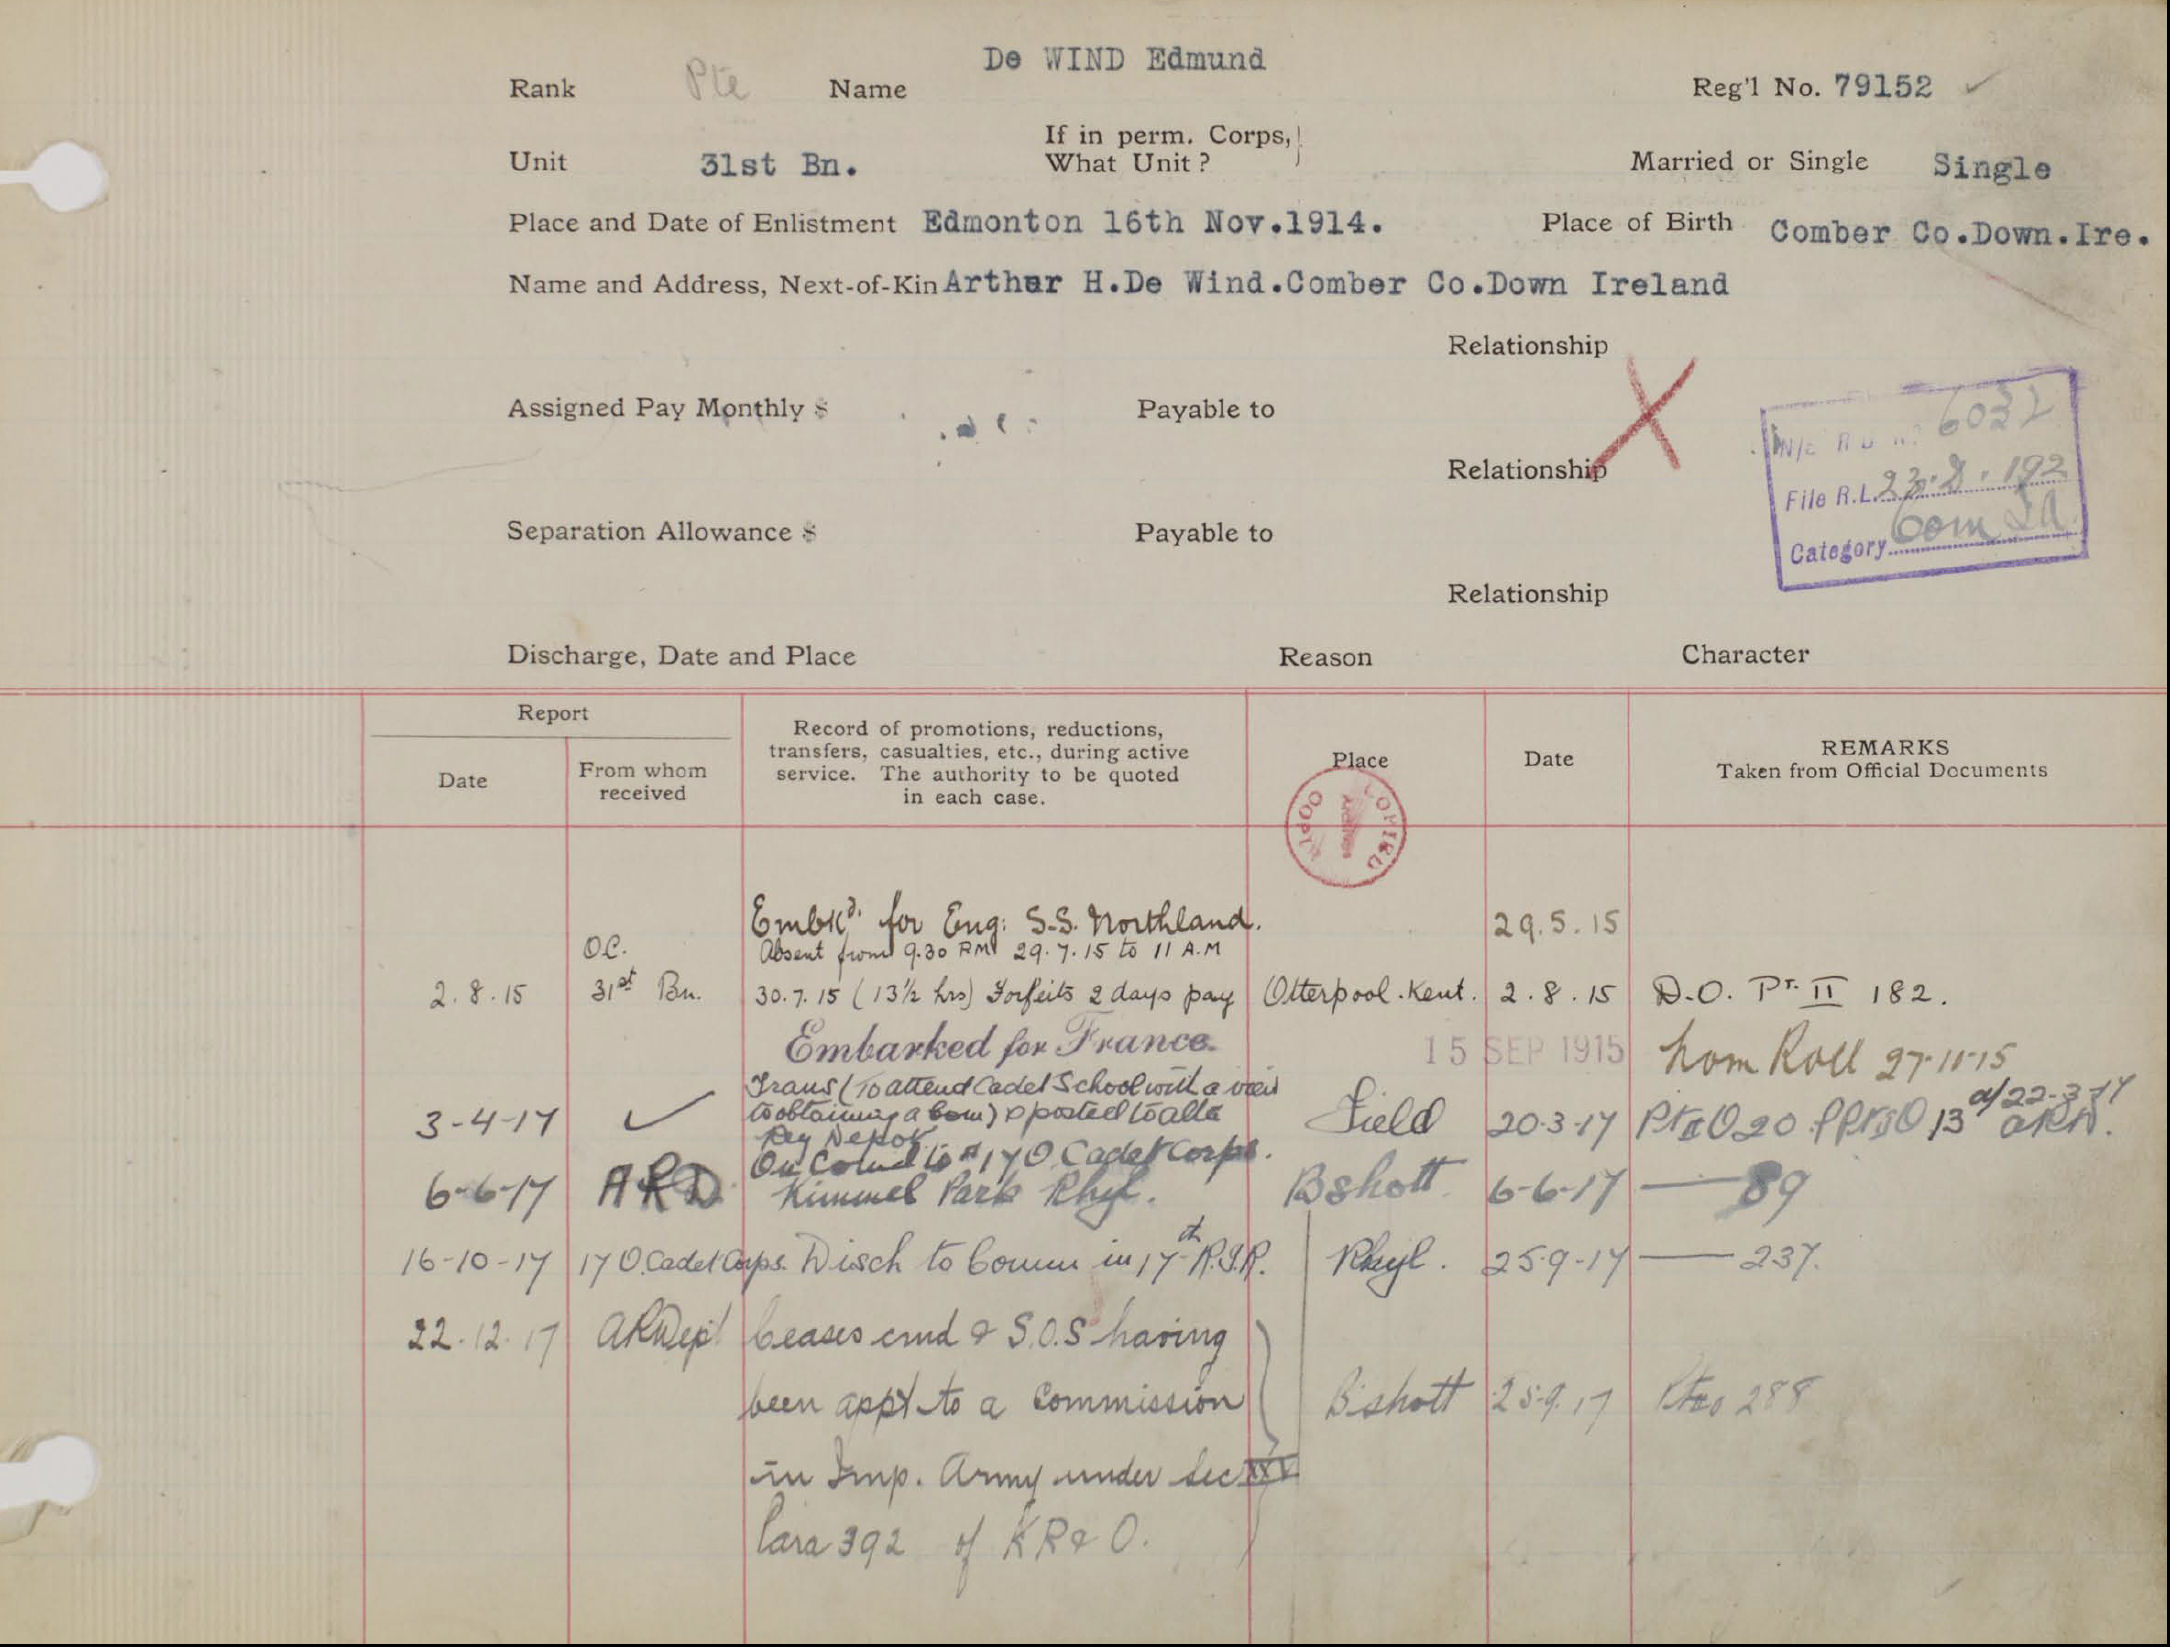 De WIND Edmund
Rank Pte Name Reg'l No. 79152
If in perm. Corps,
Unit 31st Bn. What Unit? Married or Single Single
Place and Date of Enlistment Edmonton 16th Nov.1914. Place of Birth Comber Co.Down.Ire.
Name and Address, Next-of-Kin Arthur H.De Wind.Comber Co.Down Ireland
Relationship
Assigned Pay Monthly $ Payable to
6032
Relationship
File R.L. 23.8.192
Separation Allowance $ Payable to
Category
Relationship
Discharge, Date and Place Reason Character
Report
Record of promotions, reductions,
transfers, casualties, etc., during active
service. The authority to be quoted
in each case.
Date
From whom
received
Place
Date
REMARKS
Taken from Official Documents
Embkd. for Eng: S.S. Northland. 29.5.15
O.C. Absent from 9.30 PM 29.7.15 to 11 A.M
2.8.15 31st Bn. 30.7.15 (13½ hrs) Forfeits 2 days pay Otterpool.Kent. 2.8.15 D.O. Pt. II 182.
Embarked for France. 15 SEP 1915 Nom Roll 27-11-15
Trans (To attend Cadet School with a view
3-4-17 to obtaining a Com) & posted to Alta Field 20-3-17 Pt II O 20 13 d/22-3-17 ARD.
Reg Depot
On Comd to # 17 O. Cadet Corps.
6-6-17 ARD Kimmel Park Rhyl. Bshott 6-6-17 — 89
16-10-17 17 O.Cadet Corps. Disch to Comm in 17th R.I.R. Rhyl. 25-9-17 — 237.
22.12.17 ARDept Ceases cmd & S.O.S having
been appt to a Commission Bshott 25.9.17 288
in Imp. Army under Sec XXV
Para 392 of KR & O.